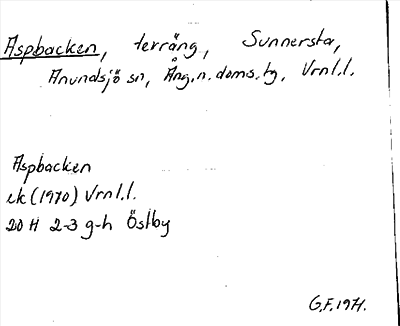 Aspbacken, terräng, Sunnersta,
Anundsjö sn, Ång.n.doms.tg. Vrnl.l.
Aspbacken
ek (1970) Vrnl.l.
20 H 2-3 g-h Östby
G.F. 1971.